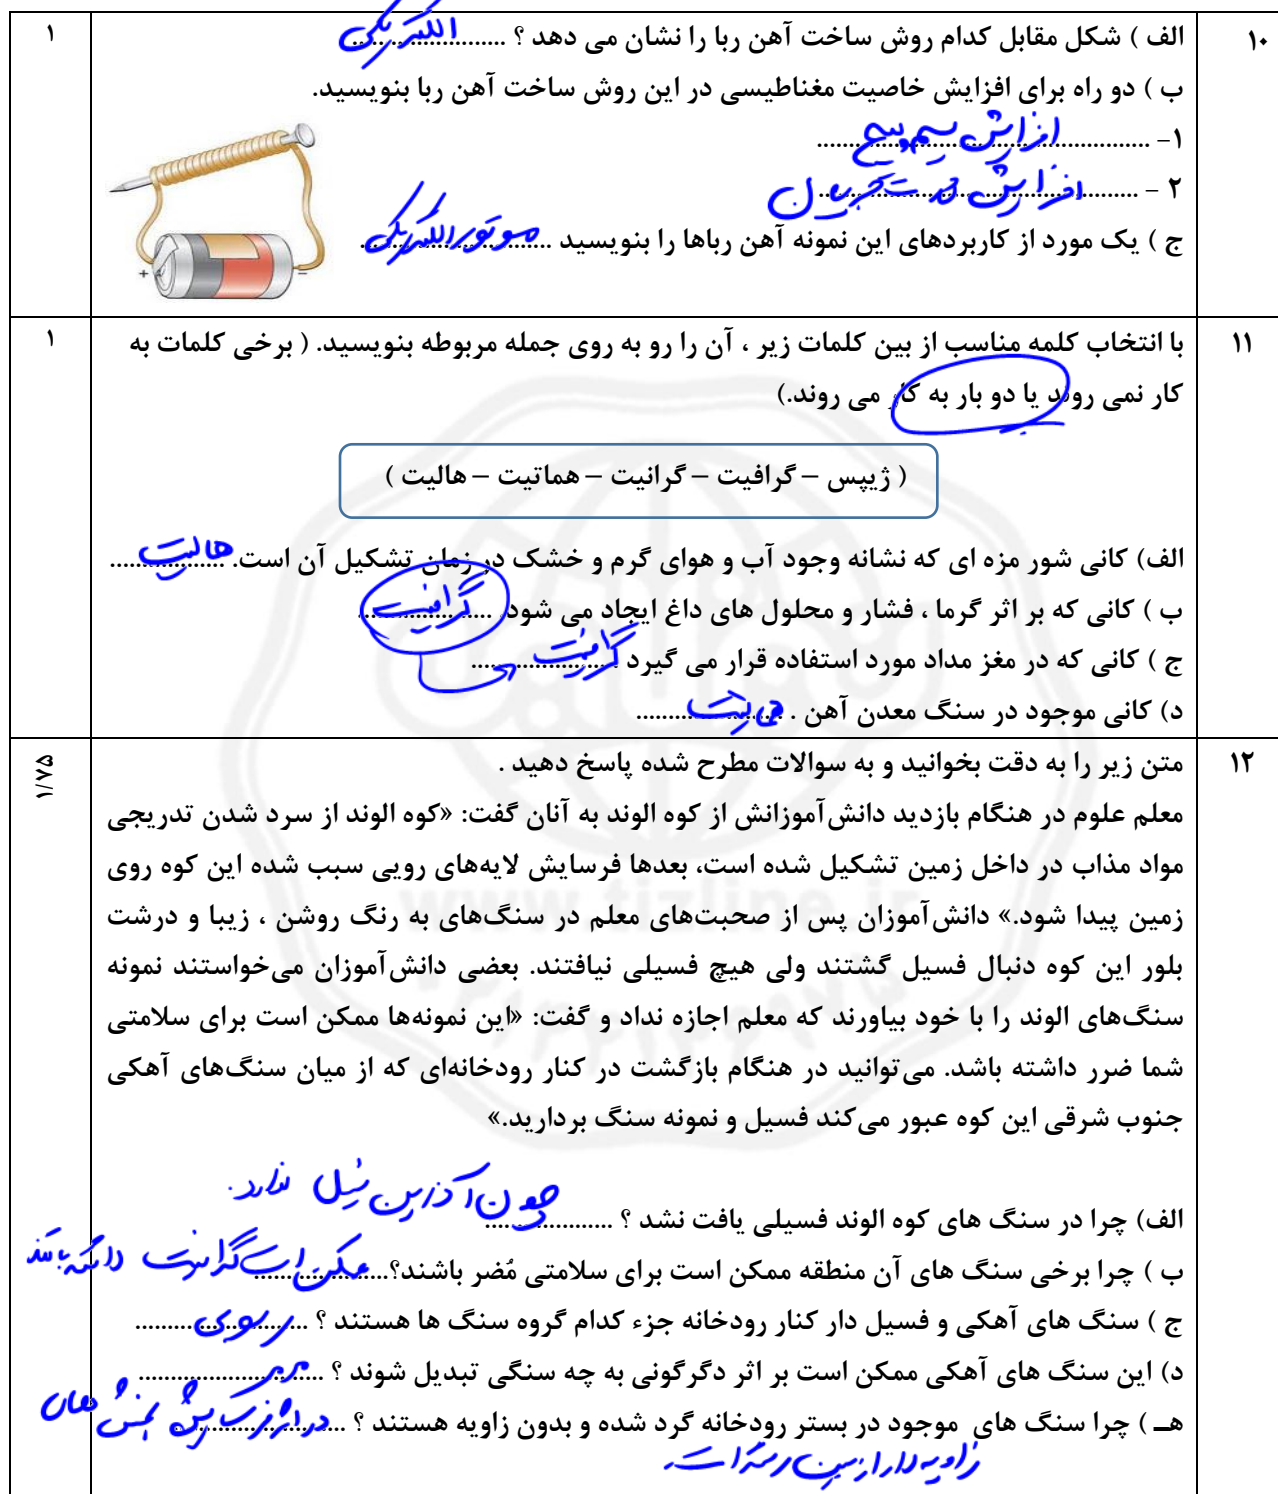 ۱۰
الف ) شکل مقابل کدام روش ساخت آهن ربا را نشان می دهد ؟ .......... الکتریکی
۱
ب ) دو راه برای افزایش خاصیت مغناطیسی در این روش ساخت آهن ربا بنویسید.
۱- .......... افزایش سیم پیچ
۲ - .......... افزایش قدرت جریان
ج ) یک مورد از کاربردهای این نمونه آهن رباها را بنویسید .......... موتور الکتریکی
+ −
۱۱
با انتخاب کلمه مناسب از بین کلمات زیر ، آن را رو به روی جمله مربوطه بنویسید. ( برخی کلمات به
۱
کار نمی روند یا دو بار به کار می روند.)
( ژیپس – گرافیت – گرانیت – هماتیت – هالیت )
الف) کانی شور مزه ای که نشانه وجود آب و هوای گرم و خشک در زمان تشکیل آن است. .......... هالیت
ب ) کانی که بر اثر گرما ، فشار و محلول های داغ ایجاد می شود. .......... گرافیت
ج ) کانی که در مغز مداد مورد استفاده قرار می گیرد . .......... گرافیت
د) کانی موجود در سنگ معدن آهن . .......... هماتیت
۱۲
متن زیر را به دقت بخوانید و به سوالات مطرح شده پاسخ دهید .
۱/۷۵
معلم علوم در هنگام بازدید دانش‌آموزانش از کوه الوند به آنان گفت: «کوه الوند از سرد شدن تدریجی
مواد مذاب در داخل زمین تشکیل شده است، بعدها فرسایش لایه‌های رویی سبب شده این کوه روی
زمین پیدا شود.» دانش‌آموزان پس از صحبت‌های معلم در سنگ‌های به رنگ روشن ، زیبا و درشت
بلور این کوه دنبال فسیل گشتند ولی هیچ فسیلی نیافتند. بعضی دانش‌آموزان می‌خواستند نمونه
سنگ‌های الوند را با خود بیاورند که معلم اجازه نداد و گفت: «این نمونه‌ها ممکن است برای سلامتی
شما ضرر داشته باشد. می‌توانید در هنگام بازگشت در کنار رودخانه‌ای که از میان سنگ‌های آهکی
جنوب شرقی این کوه عبور می‌کند فسیل و نمونه سنگ بردارید.»
الف) چرا در سنگ های کوه الوند فسیلی یافت نشد ؟ .......... چون آذرین فسیل ندارد.
ب ) چرا برخی سنگ های آن منطقه ممکن است برای سلامتی مُضر باشند؟.......... ممکن است گرانیت داشته باشند
ج ) سنگ های آهکی و فسیل دار کنار رودخانه جزء کدام گروه سنگ ها هستند ؟ .......... رسوبی
د) این سنگ های آهکی ممکن است بر اثر دگرگونی به چه سنگی تبدیل شوند ؟ .......... مرمر
هـ ) چرا سنگ های موجود در بستر رودخانه گرد شده و بدون زاویه هستند ؟ .......... در اثر فرسایش بخش های
زاویه دار از بین رفته است.
www.tizline.ir